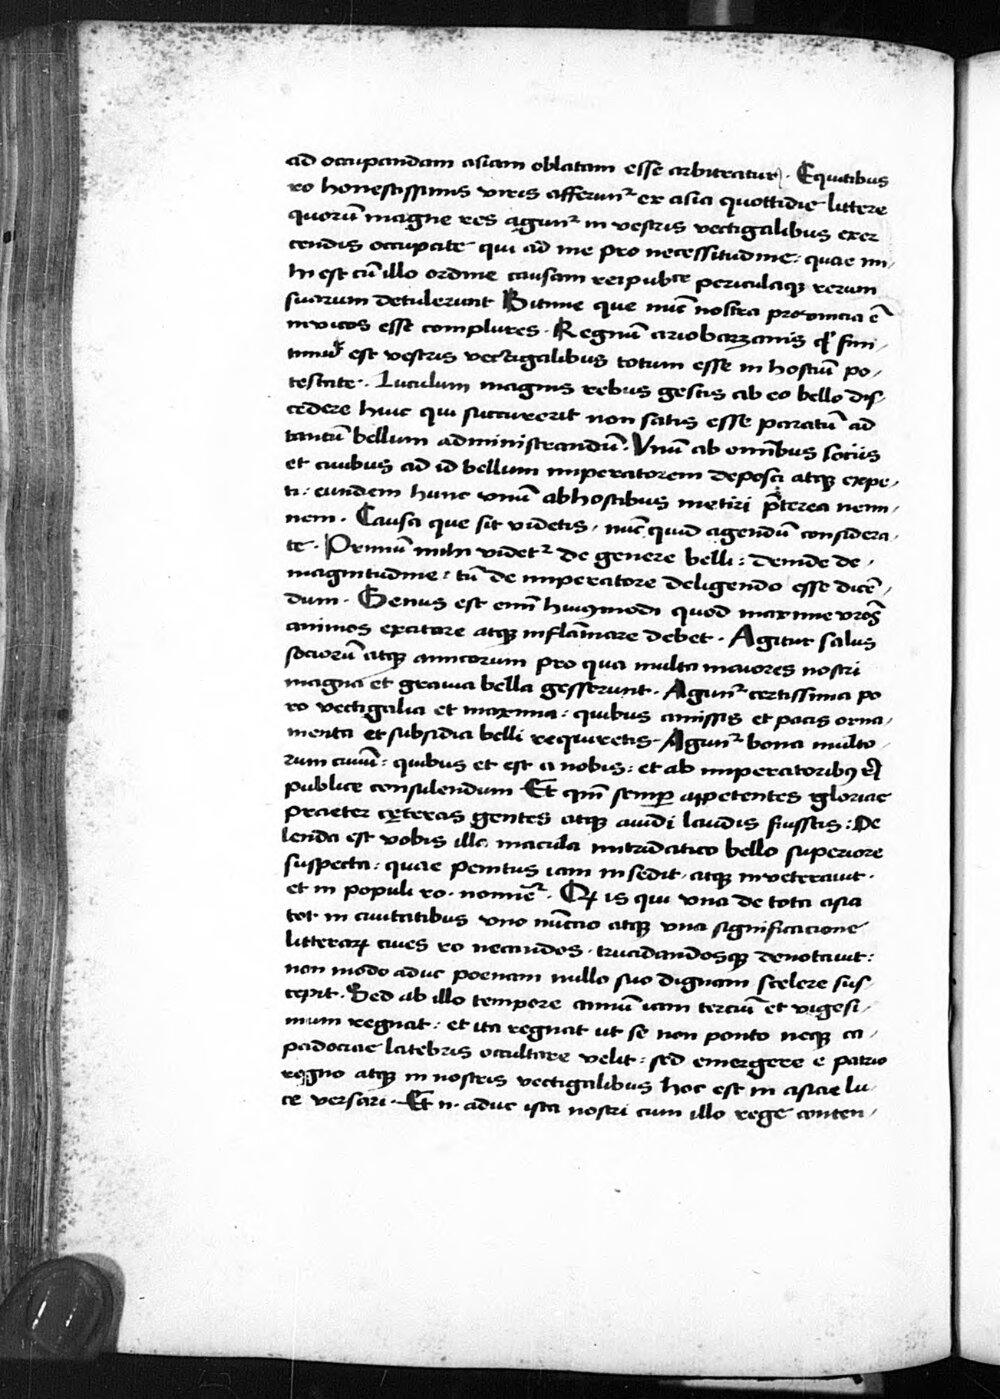 ad occupandam asiam oblatam esse arbitratur. Equitibus
ro honestissimis viris afferunt᷑ ex asia quottidie littere
quorū magne res agunt᷑ in vestris vectigalibus exer
cendis occupate qui ad me pro necessitudine: quae mi/
hi est cū illo ordine causam reipublice periculaqꝫ rerum
suarum detulerunt Bitinie que nūc nostra prouincia ē
in vicos esse complures. Regnū ariobarzanis qđ fini/
timum est vestris vectigalibus totum esse in hostiū po/
testate. Luculum magnis rebus gestis ab eo bello dis
cedere huic qui succurerit non satis esse paratū ad
tantū bellum administrandū. Vnū ab omnibus sociis
et ciuibus ad id bellum imperatorem deposci atqꝫ expe/
ti: eundem hunc vnū ab hostibus metiri p̄terea nemi/
nem. Causa que sit videtis, nūc quid agendū considera/
te. Primū mihi videt᷑ de genere belli: deinde de/
magnitudine: tū de imperatore deligendo esse dicē/
dum. Genus est enī huiqmodi quod maxime vros̄
animos excitare atqꝫ inflāmare debet. Agitur salus
sociorū atqꝫ amicorum pro qua multa maiores nostri
magna et grauia bella gesserunt. Agunt᷑ certissima po
ro vectigalia et maxima: quibus amissis et pacis orna/
menta et subsidia belli requiretis. Agunt᷑ bona multo/
rum ciuiū: quibus et est a nobis: et ab imperatoribꝫ rei
publice consulendum Et qm̄ semꝑ appetentes gloriae
praeter cęteras gentes atqꝫ auidi laudis fuistis: De
lenda est vobis illa macula mitridatico bello superiore
suspecta: quae penitus iam insedit, atqꝫ inveterauit.
et in populi ro. nomine᷑. Qꝫ is qui vna de tota asia
tot in ciuitatibus vno nūccio atqꝫ vna significacione
litterarꝫ ciues ro necandos. trucidandosqꝫ denotauit:
non modo aduc poenam nullo suo dignam scelere sus
cepit. Sed ab illo tempore annū iam terciū et vigesi/
mum regnat: et ita regnat ut se non ponto neqꝫ ca/
padociae latebris occultare velit: sed emergere e patrio
regno atqꝫ in nostris vectigalibus hoc est in asiae lu/
ce versari. Et n. aduc ista nostri cum illo rege conten/